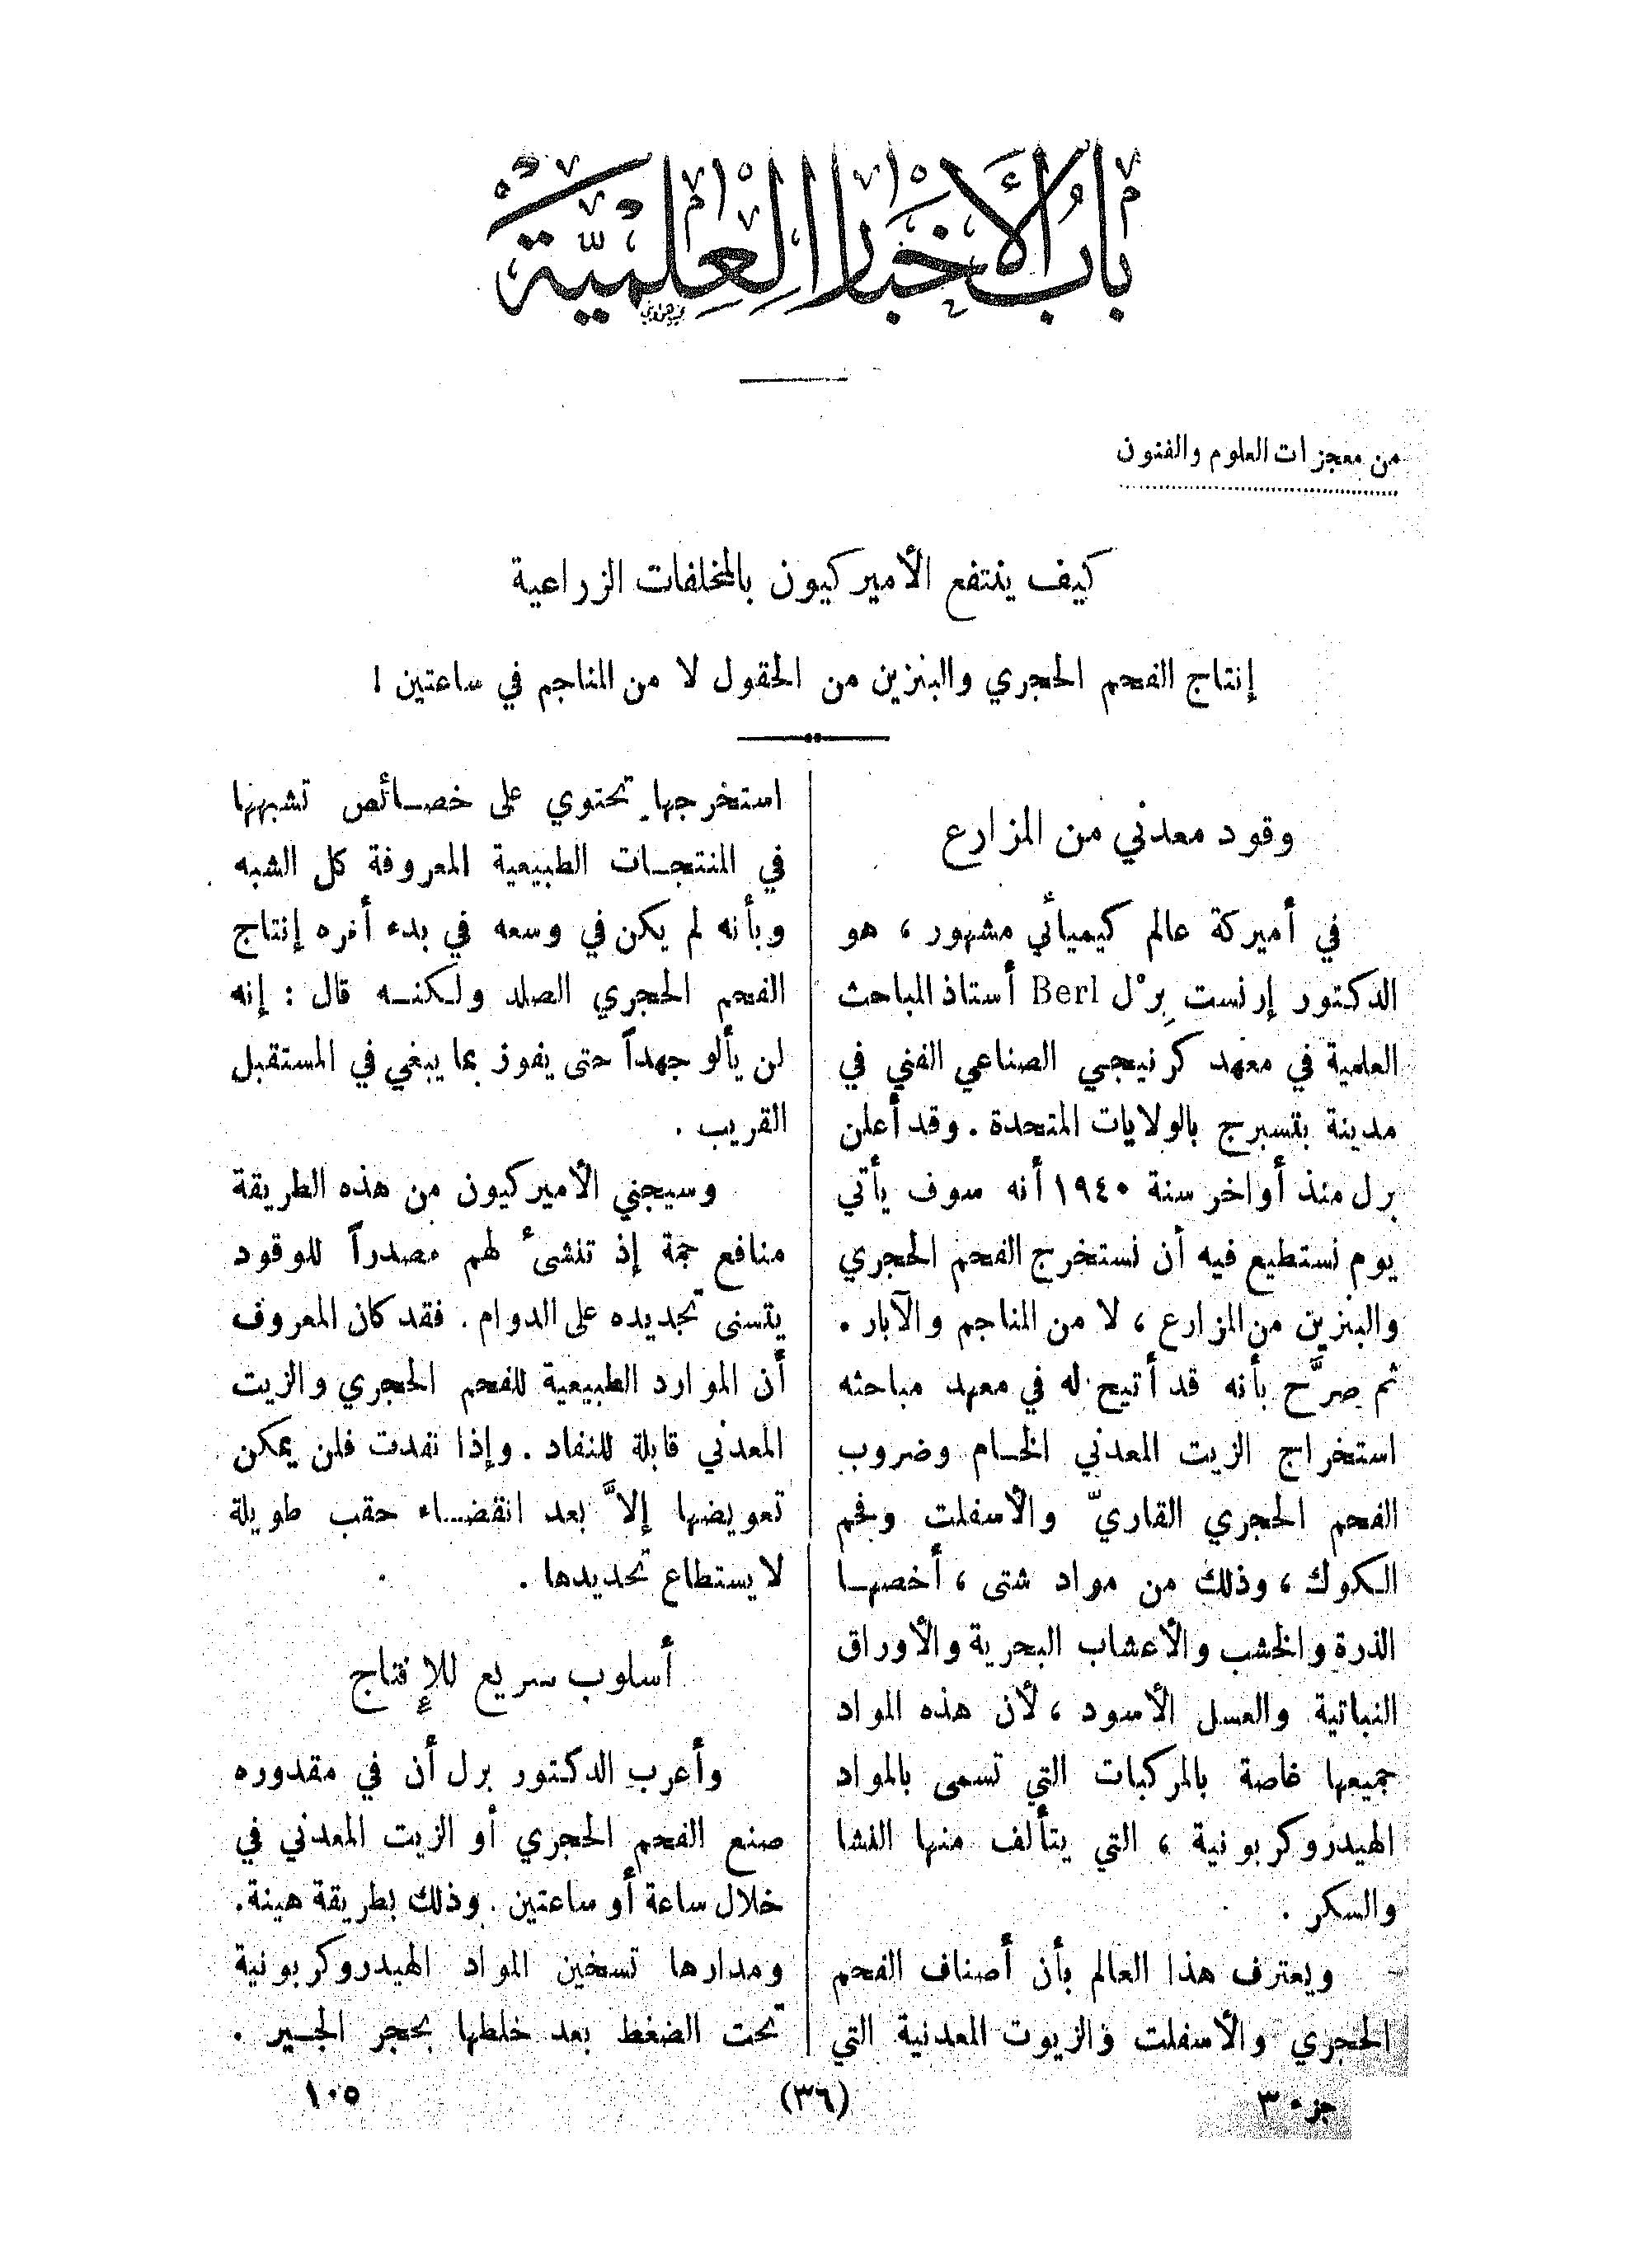 باب الأخبار العلمية
من معجزات العلوم والفنون
كيف ينتفع الأميركيون بالمخلفات الزراعية
إنتاج الفحم الحجري والبنزين من الحقول لا من المناجم في ساعتين !
وقود معدني من المزارع
في أميركة عالم كيميائي مشهور ، هو
الدكتور إرنست بِرْل Berl أستاذ المباحث
العلمية في معهد كرنيجي الصناعي الفني في
مدينة بتسبرج بالولايات المتحدة . وقد أعلن
برل منذ أواخر سنة ١٩٤٠ أنه سوف يأتي
يوم نستطيع فيه أن نستخرج الفحم الحجري
والبنزين من المزارع ، لا من المناجم والآبار .
ثم صرَّح بأنه قد أتيح له في معهد مباحثه
استخراج الزيت المعدني الخام وضروب
الفحم الحجري القاريّ والأسفلت وفحم
الكوك ، وذلك من مواد شتى ، أخصها
الذرة والخشب والأعشاب البحرية والأوراق
النباتية والعسل الأسود ، لأن هذه المواد
جميعها غاصة بالمركبات التي تسمى بالمواد
الهيدروكربونية ، التي يتألف منها النشا
والسكر .
ويعترف هذا العالم بأن أصناف الفحم
الحجري والأسفلت والزيوت المعدنية التي
استخرجها تحتوي على خصائص تشبهها
في المنتجات الطبيعية المعروفة كل الشبه
وبأنه لم يكن في وسعه في بدء أمره إنتاج
الفحم الحجري الصلد ولكنه قال : إنه
لن يألو جهداً حتى يفوز بما يبغي في المستقبل
القريب .
وسيجني الأميركيون من هذه الطريقة
منافع جمة إذ تنشئ لهم مصدراً للوقود
يتسنى تجديده على الدوام . فقد كان المعروف
أن الموارد الطبيعية للفحم الحجري والزيت
المعدني قابلة للنفاد . وإذا نفدت فلن يمكن
تعويضها إلاَّ بعد انقضاء حقب طويلة
لا يستطاع تحديدها .
أسلوب سريع للإنتاج
وأعرب الدكتور برل أن في مقدوره
صنع الفحم الحجري أو الزيت المعدني في
خلال ساعة أو ساعتين . وذلك بطريقة هينة .
ومدارها تسخين المواد الهيدروكربونية
تحت الضغط بعد خلطها بحجر الجير .
جزء ٣
(٣٦)
١٠٥